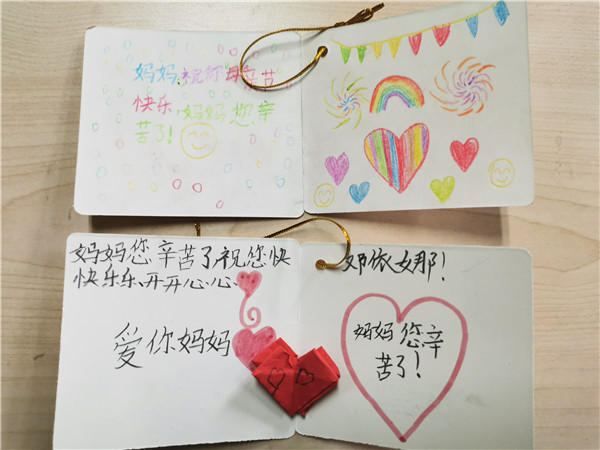 妈妈,祝你母
快乐,妈妈您辛
苦了!
妈妈您辛苦了祝您快
快乐乐、开开心心、
爱你妈妈
邓依娜!
妈妈您辛
苦了!